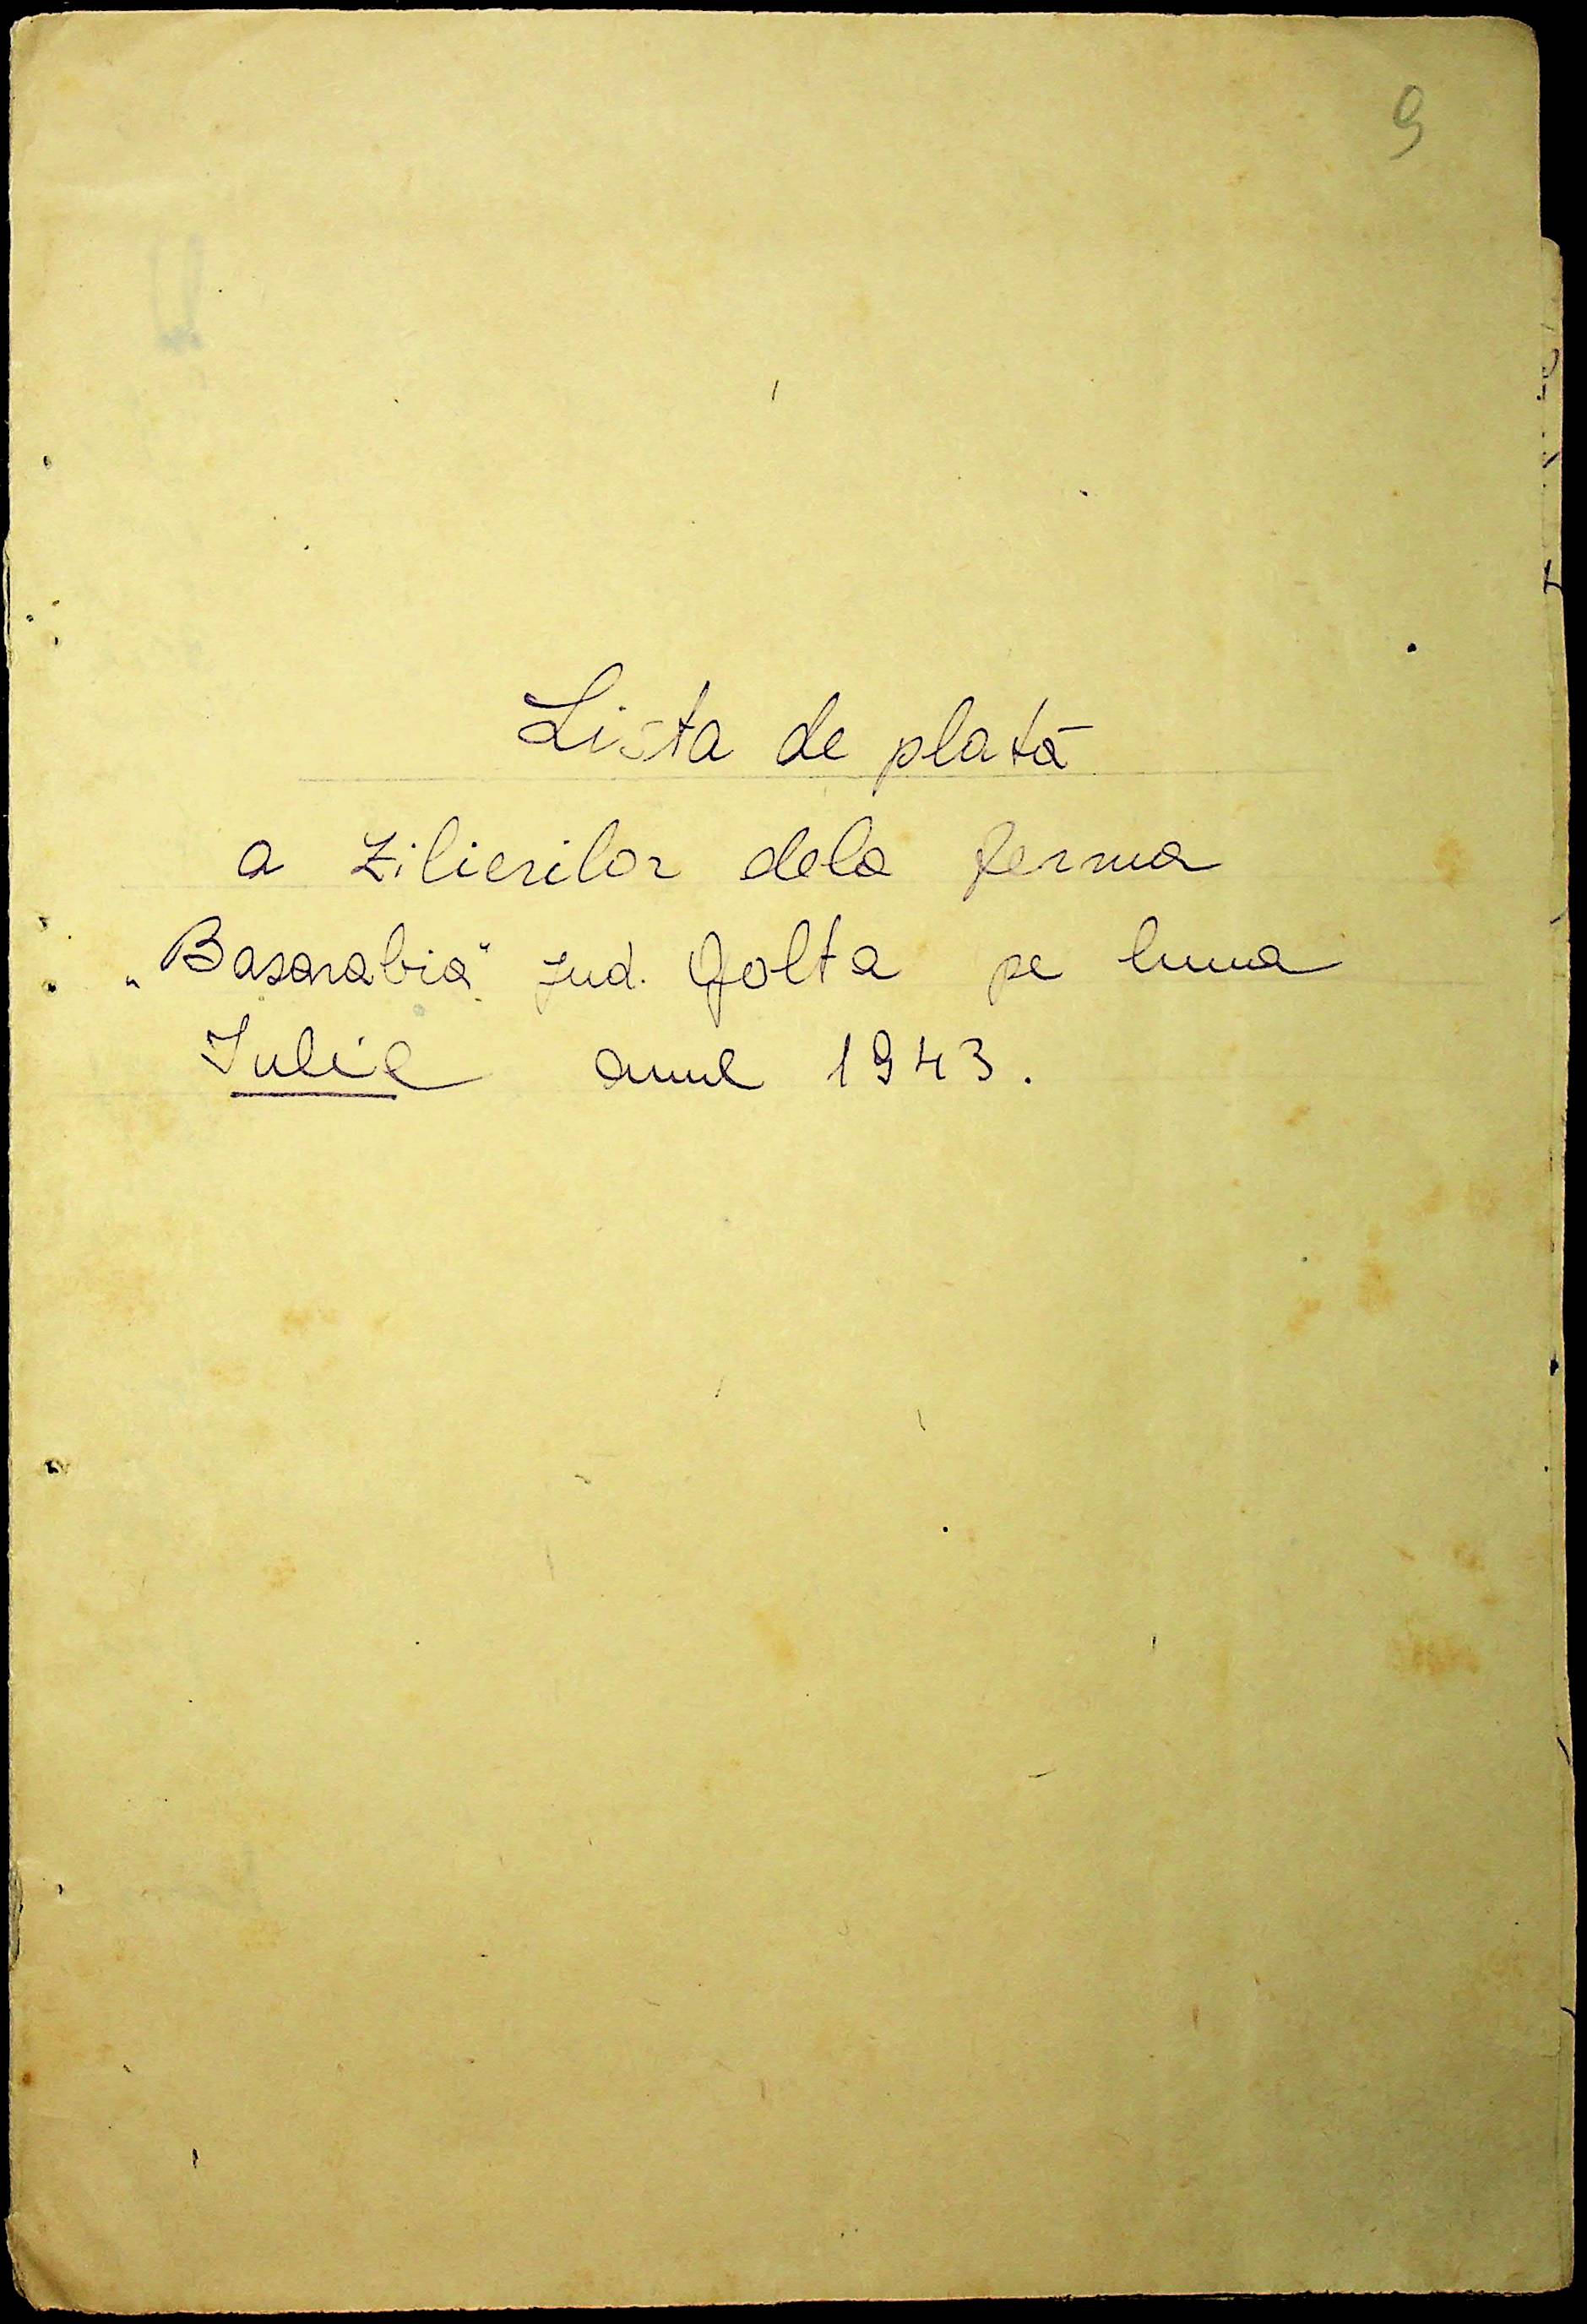 9
Lista de plată
a zilierilor dela ferma
„Basarabia" jud. Golta pe luna
Iulie anul 1943.